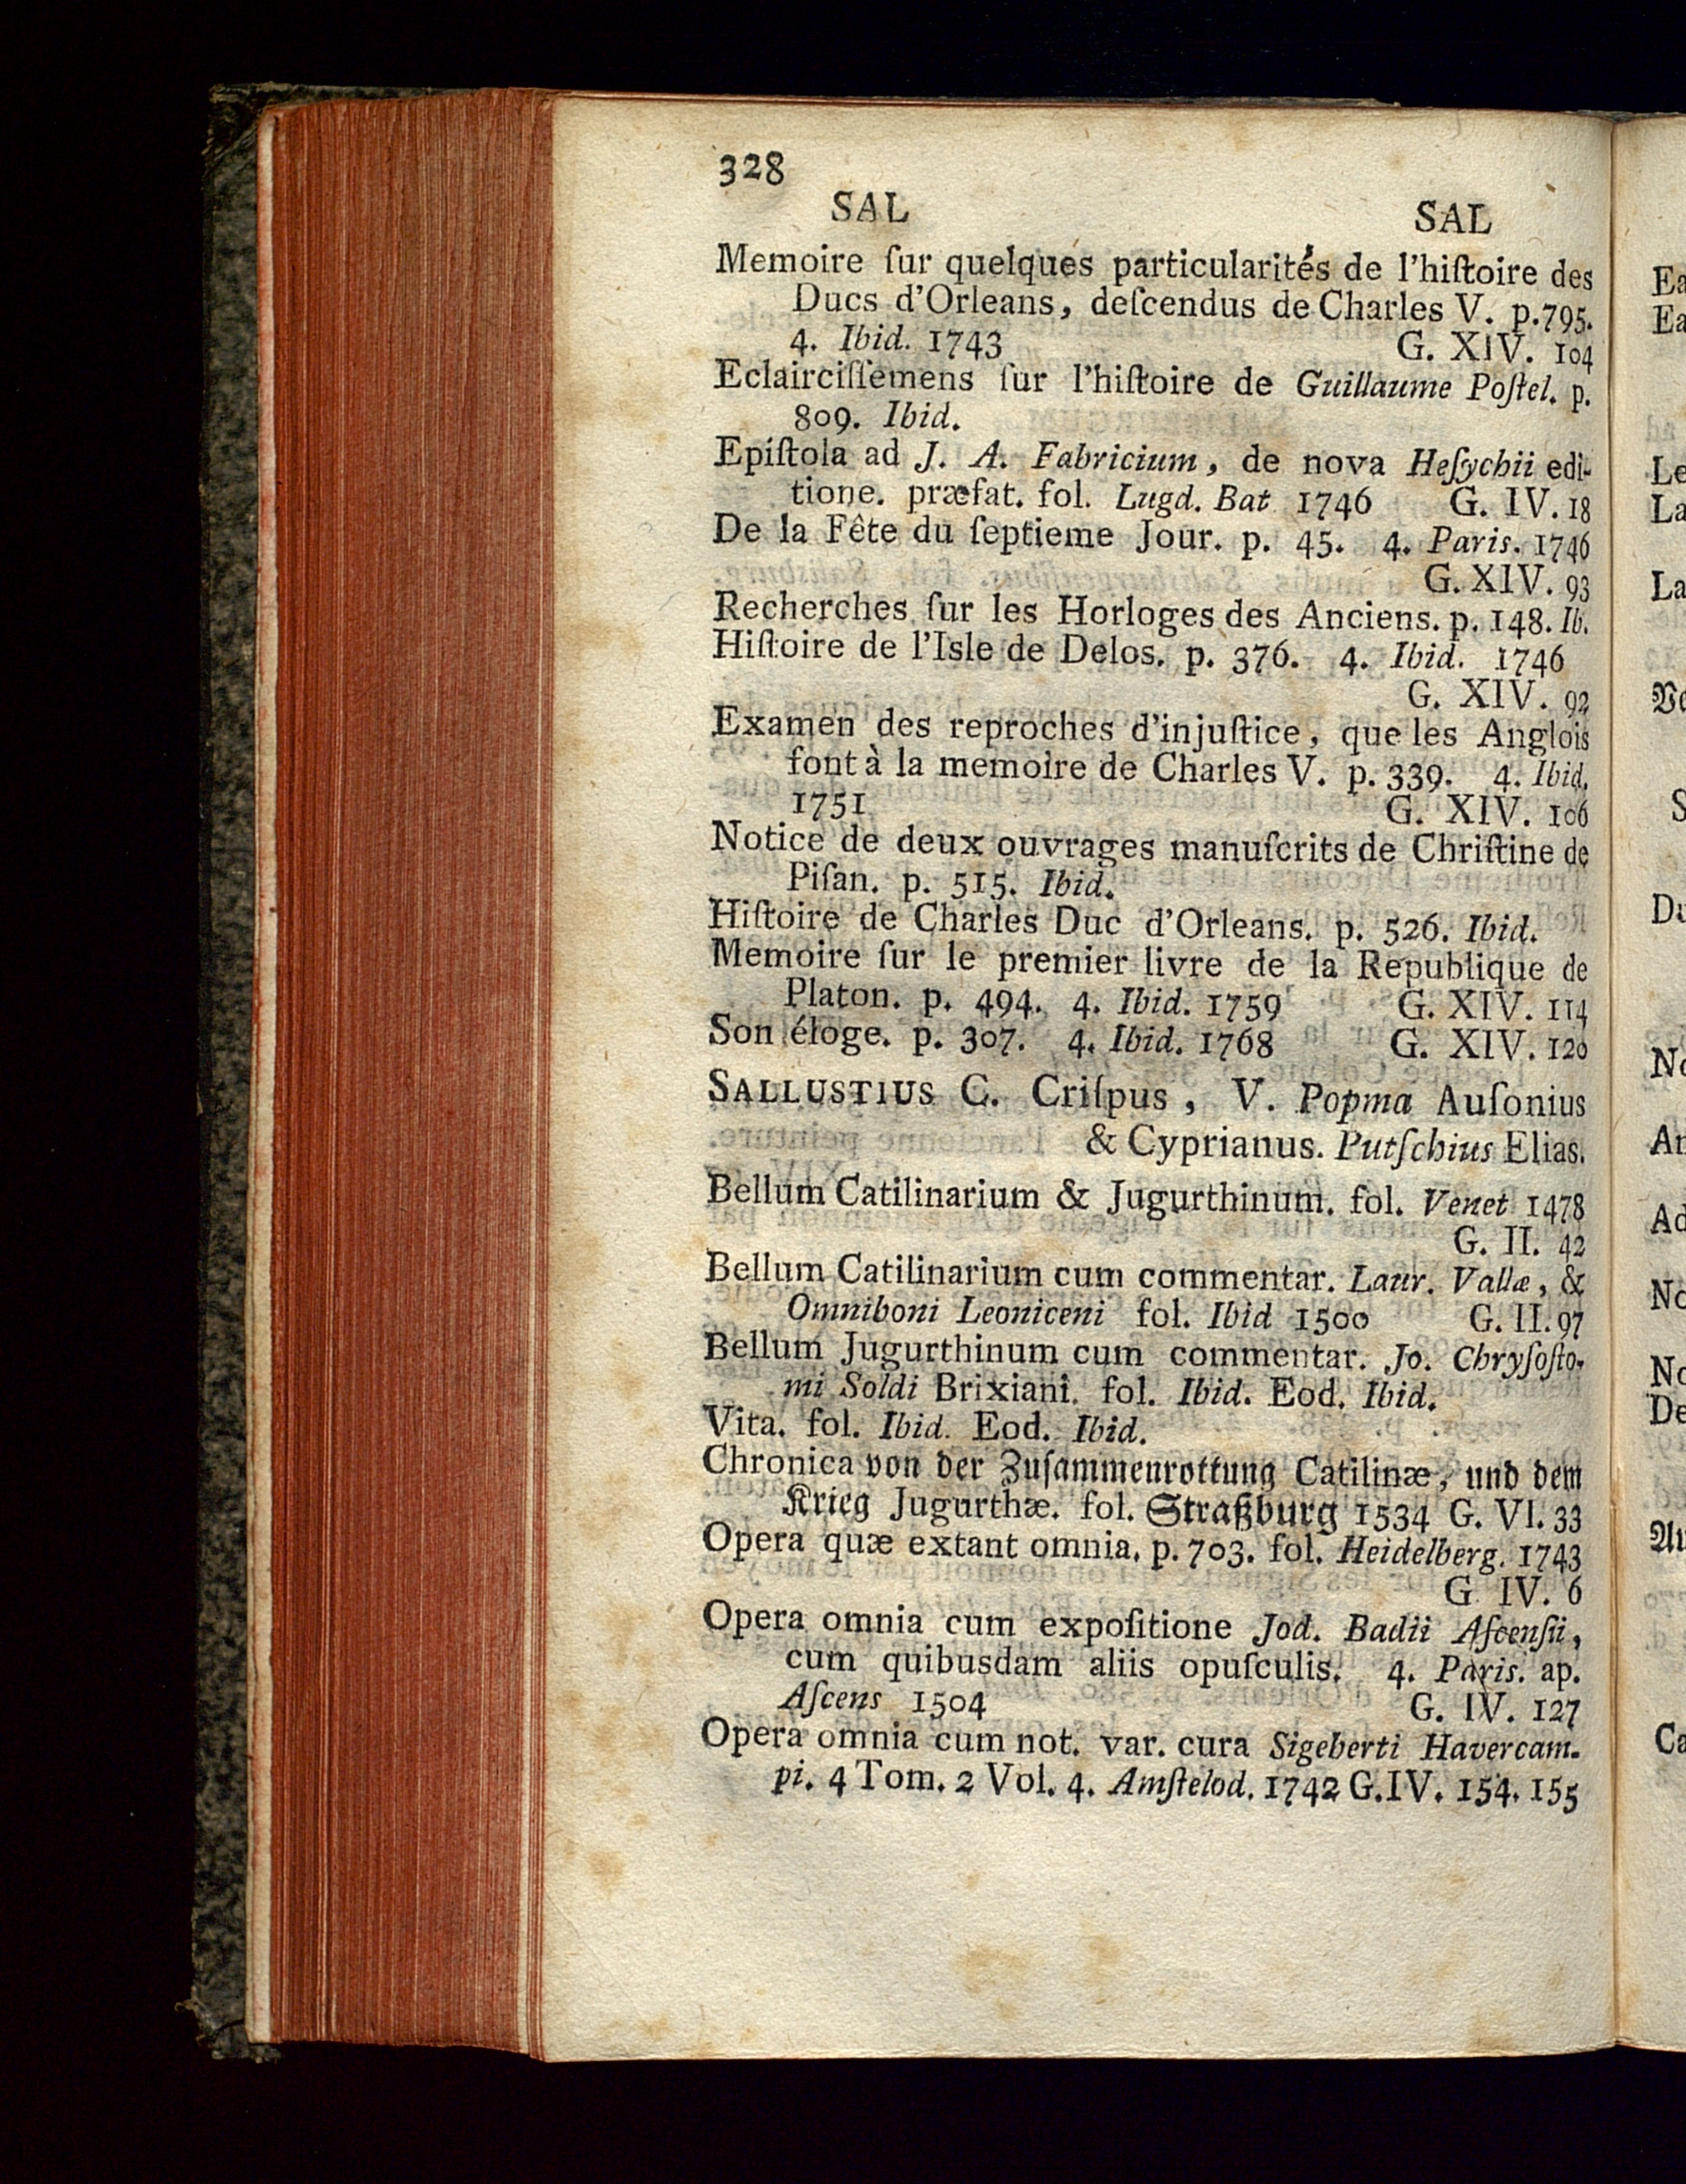 328
SAL SAL
Memoire ſur quelques particularités de l'hiſtoire des
Ducs d'Orleans, deſcendus de Charles V. p. 795.
4. Ibid. 1743 G. XIV. 104
Eclairciſſemens ſur l'hiſtoire de Guillaume Poſtel. p.
809. Ibid.
Epiſtola ad J. A. Fabricium, de nova Heſychii edi-
tione. præfat. fol. Lugd. Bat 1746 G. IV. 18
De la Fête du ſeptieme Jour. p. 45. 4. Paris. 1746
G. XIV. 93
Recherches ſur les Horloges des Anciens. p. 148. Ib.
Hiſtoire de l'Isle de Delos. p. 376. 4. Ibid. 1746
G. XIV. 92
Examen des reproches d'injuſtice, que les Anglois
font à la memoire de Charles V. p. 339. 4. Ibid.
1751 G. XIV. 106
Notice de deux ouvrages manuſcrits de Chriſtine de
Piſan. p. 515. Ibid.
Hiſtoire de Charles Duc d'Orleans. p. 526. Ibid.
Memoire ſur le premier livre de la Republique de
Platon. p. 494. 4. Ibid. 1759 G. XIV. 114
Son éloge. p. 307. 4. Ibid. 1768 G. XIV. 120
SALLUSTIUS C. Criſpus, V. Popma Auſonius
& Cyprianus. Putſchius Elias.
Bellum Catilinarium & Jugurthinum. fol. Venet 1478
G. II. 42
Bellum Catilinarium cum commentar. Laur. Vallæ, &
Omniboni Leoniceni fol. Ibid 1500 G. II. 97
Bellum Jugurthinum cum commentar. Jo. Chryſoſto-
mi Soldi Brixiani. fol. Ibid. Eod. Ibid.
Vita. fol. Ibid. Eod. Ibid.
Chronica von der Zuſammenrottung Catilinæ, und dem
Krieg Jugurthæ. fol. Straßburg 1534 G. VI. 33
Opera quæ extant omnia. p. 703. fol. Heidelberg. 1743
G IV. 6
Opera omnia cum expoſitione Jod. Badii Aſcenſii,
cum quibusdam aliis opuſculis. 4. Paris. ap.
Aſcens 1504 G. IV. 127
Opera omnia cum not. var. cura Sigeberti Havercam-
pi. 4 Tom. 2 Vol. 4. Amſtelod. 1742 G. IV. 154. 155